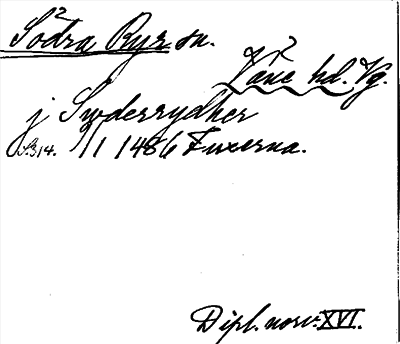 Södra Ryr sn.
Väne hd. Vg.
j Swderrydher
s. 314. 3/1 1486 Fuxerna.
Dipl. norv. XVI.